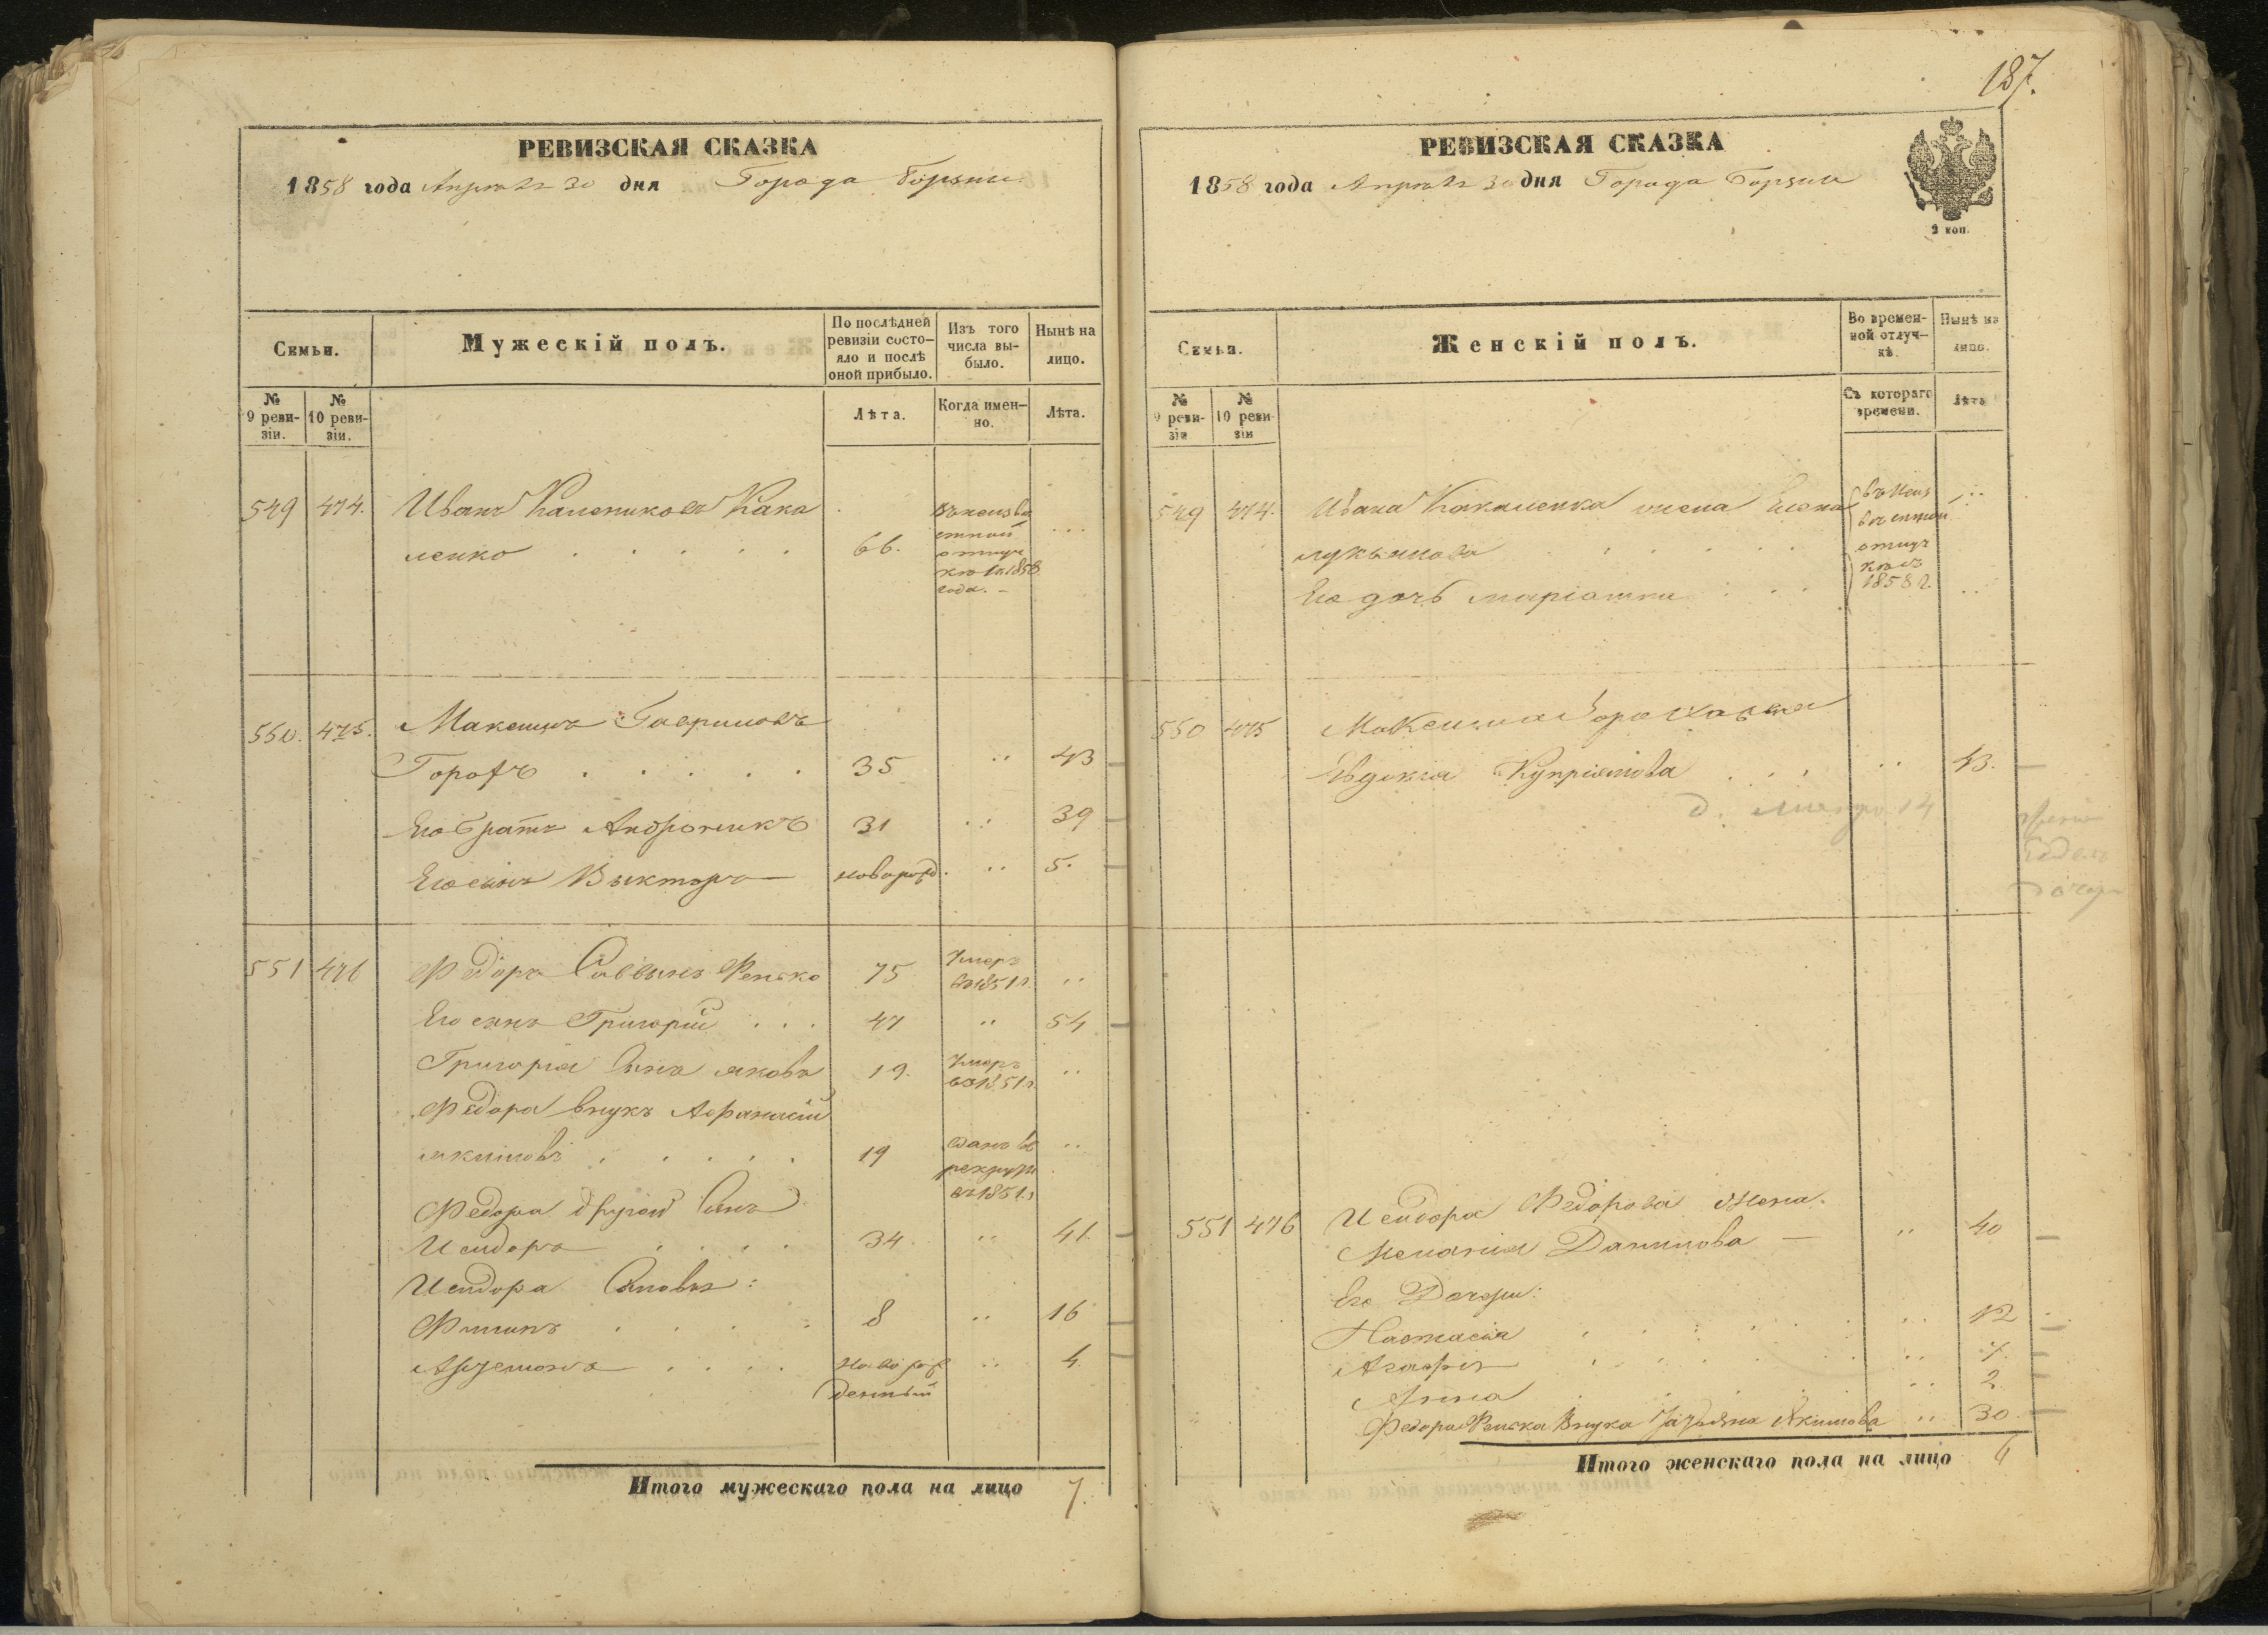 187.
РЕВИЗСКАЯ СКАЗКА
1858 года Апреля 30 дня Города Борзны
Семьи.
Мужескій полъ.
По послѣдней ревизіи состо-
яло и послѣ
оной прибыло.
Изъ того
числа вы-
было.
Нынѣ на
лицо.
№
9 реви-
зіи.
№
10 реви-
зіи.
Лѣта.
Когда имен-
но.
Лѣта.
549 474. Иванъ Калениковъ Кака
ленко 66.
въ неизвѣ
стной
отлуч
кѣ
1858
года.
550. 475. Максимъ Гавриловъ
Горохъ 35 43
Его братъ Андроникъ 31 39
Его сынъ Викторъ новорожд. 5.
551 476 Федоръ Саввинъ Фенско 75 Умеръ
въ 1851 г.
Его сынъ Григорій 47 54
Григорія сынъ Яковъ 19. Умеръ
въ 1851 г.
Федора внукъ Афанасій
Якимовъ 19 сданъ въ
рекруты
въ 1851 г.
Федора другой сынъ
Исидоръ 34 41.
Исидора сыновья:
Филипъ 8 16
Артемонъ новорож 4
денный
Итого мужескаго пола на лицо 7.
РЕВИЗСКАЯ СКАЗКА
1858 года Апреля 30 дня Города Борзны
2 коп.
Семьи.
Женскій полъ.
Во времен-
ной отлуч-
кѣ.
Нынѣ на
лицо.
№
9 реви-
зіи
№
10 реви-
зіи
Съ котораго
времени.
Лѣта
549 474. Ивана Какаленка жена Елена
Лукьянова
Его дочь Маріамна
въ неиз
вѣстной
отлуч
кѣ съ
1858 г.
550 475 Максима Гороха жена
Евдокія Купріянова 43.
551 476 Исидора Федорова жена
Меланія Данилова 40
Его Дочери:
Настасія 12
Агафія 7.
Анна 2
Федора Фенска внука Татьяна Якимова 30.
Итого женскаго пола на лицо 6